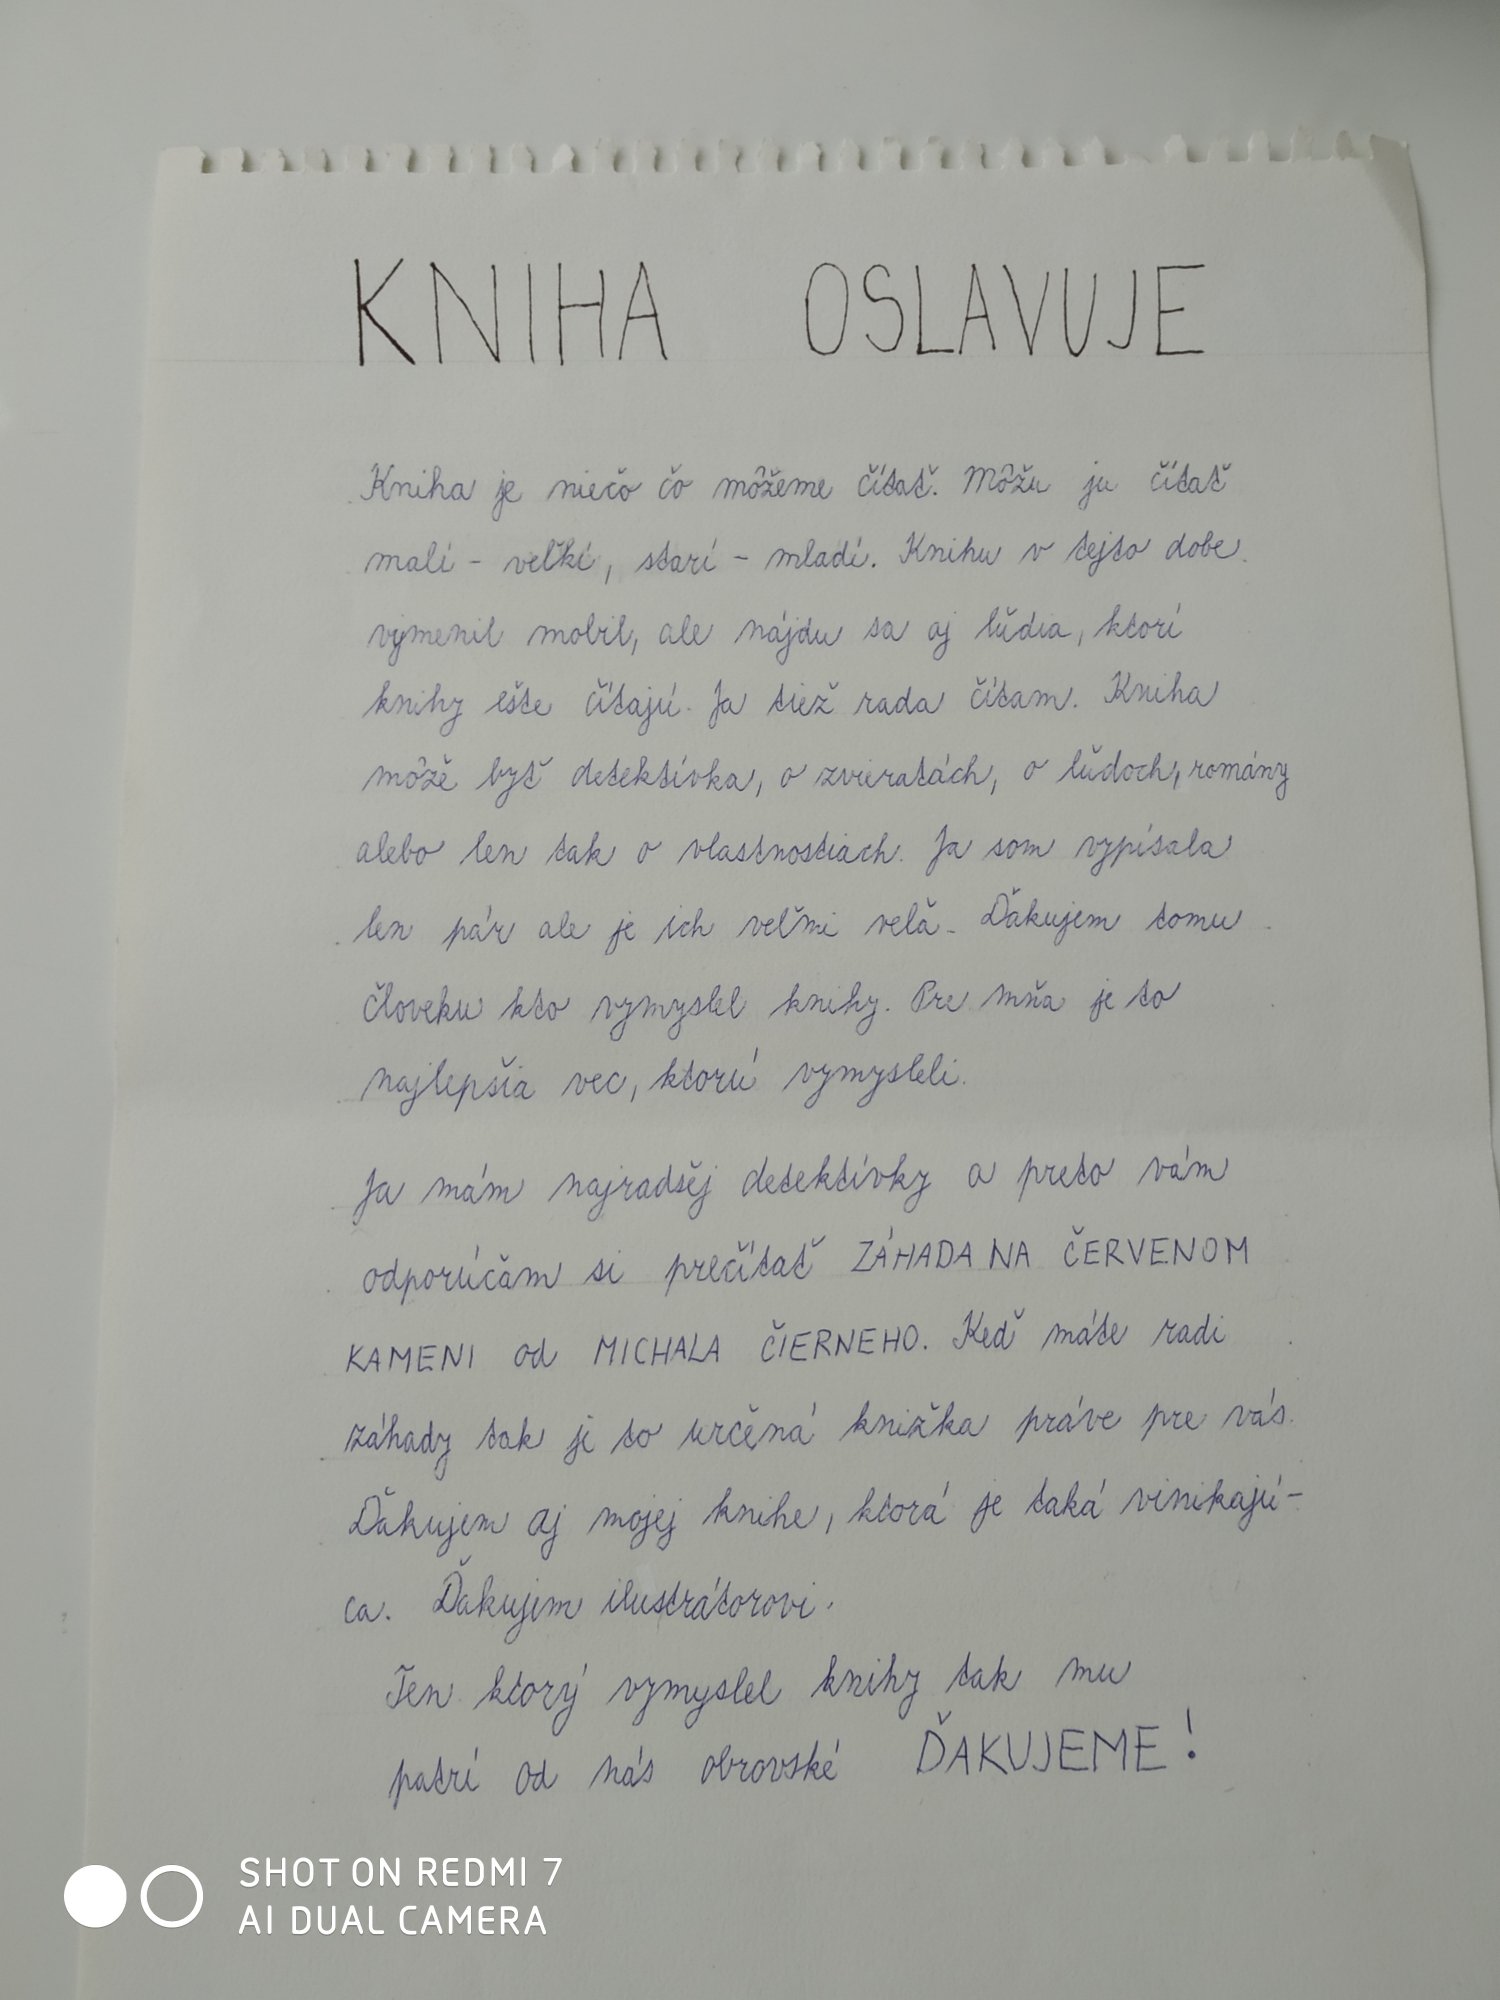 KNIHA OSLAVUJE
Kniha je niečo čo môžeme čítať. Môžu ju čítať
malí - veľkí, starí - mladí. Knihu v tejto dobe
vymenil mobil, ale nájdu sa aj lúďia, ktorí
knihy ešte čítajú. Ja tiež rada čítam. Kniha
môžě byť detektívka, o zvieratách, o lúďoch, romány
alebo len tak o vlastnostiach. Ja som vypísala
len pár ale je ich veľmi velǎ. Ďakujem tomu
človeku kto vymyslel knihy. Pre mňa je to
najlepšia vec, ktorú vymysleli.
Ja mám najradšěj detektívky a preto vám
odporúčǎm si prečítať ZÁHADA NA ČERVENOM
KAMENI od MICHALA ČIERNEHO. Keď máte radi
záhady tak je to určěná knižka práve pre vás.
Ďakujem aj mojej knihe, ktorá je taká vinikajú-
ca. Ďakujem ilustrátorovi.
Ten ktorý vymyslel knihy tak mu
patrí od nás obrovské ĎAKUJEME!
SHOT ON REDMI 7
AI DUAL CAMERA